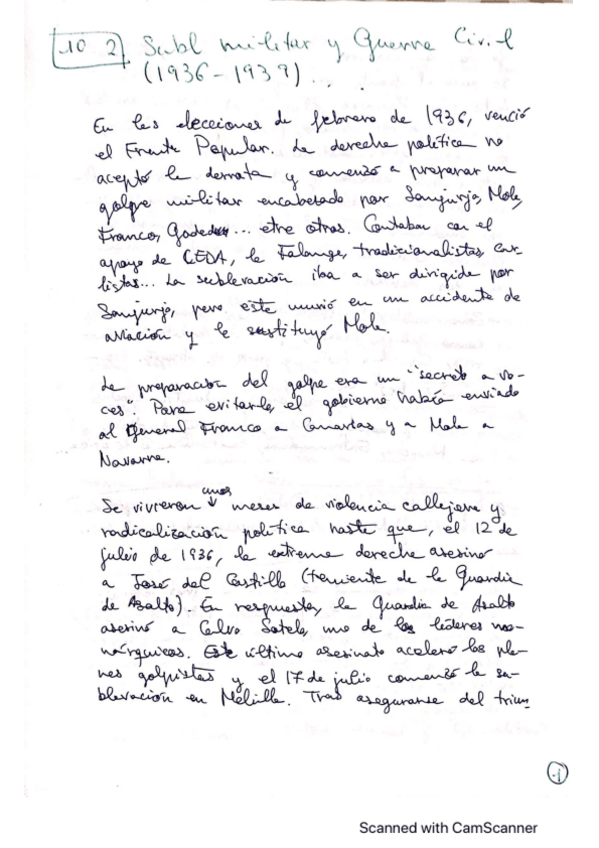 10 2) Subl militar y Guerra Civil
(1936-1939)...
En las elecciones de febrero de 1936, venció
el Frente Popular. La derecha política no
aceptó la derrota y comenzó a preparar un
golpe militar encabezado por Sanjurjo, Mola,
Franco, Goded... etre otros. Contaban con el
apoyo de CEDA, la Falange, tradicionalistas, car-
listas... La sublevación iba a ser dirigida por
Sanjurjo, pero este murió en un accidente de
aviación y le sustituyó Mola.
La preparación del golpe era un "secreto a vo-
ces". Para evitarlo, el gobierno había enviado
al General Franco a Canarias y a Mola a
Navarra.
unos
Se vivieron ↓ meses de violencia callejera y
radicalización política hasta que, el 12 de
julio de 1936, la extrema derecha asesinó
a José del Castillo (teniente de la Guardia
de Asalto). En respuesta, la Guardia de Asalto
asesinó a Calvo Sotelo, uno de los líderes mo-
nárquicos. Este último asesinato aceleró los pla-
nes golpistas y el 17 de julio comenzó la su-
blevación en Melilla. Tras asegurarse del triun
Scanned with CamScanner